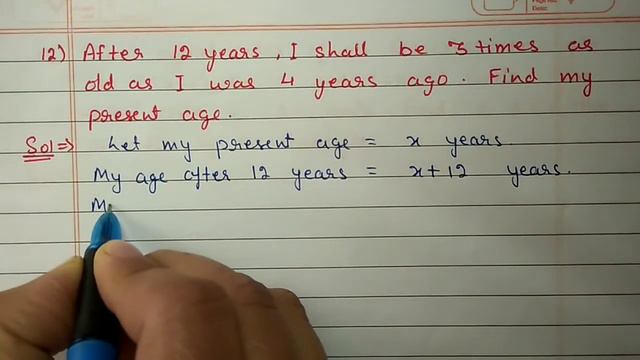 12) After 12 years, I shall be 3 times as
old as I was 4 years ago. Find my
present age.
Sol⇒ Let my present age = x years.
My age after 12 years = x+12 years.
M